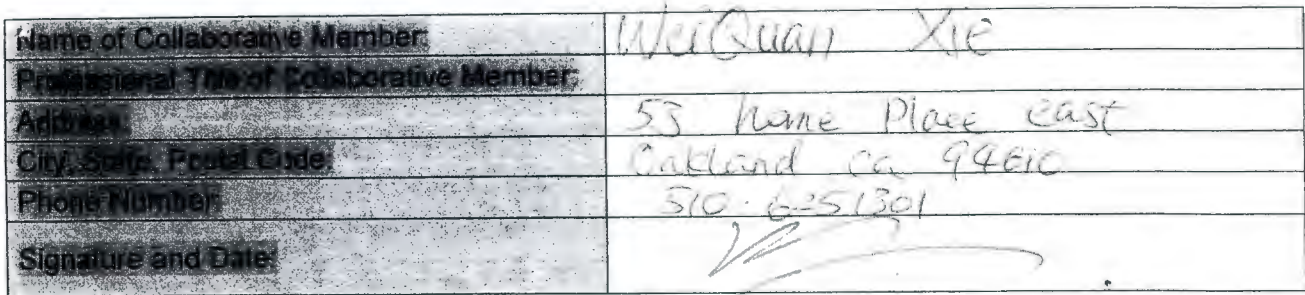 Name of Collaborative Member: WeiQuan Xie
Professional Title of Collaborative Member:
Address: 55 Home Place east
City, State, Postal Code: Oakland ca 94610
Phone Number: 510-6251301
Signature and Date: